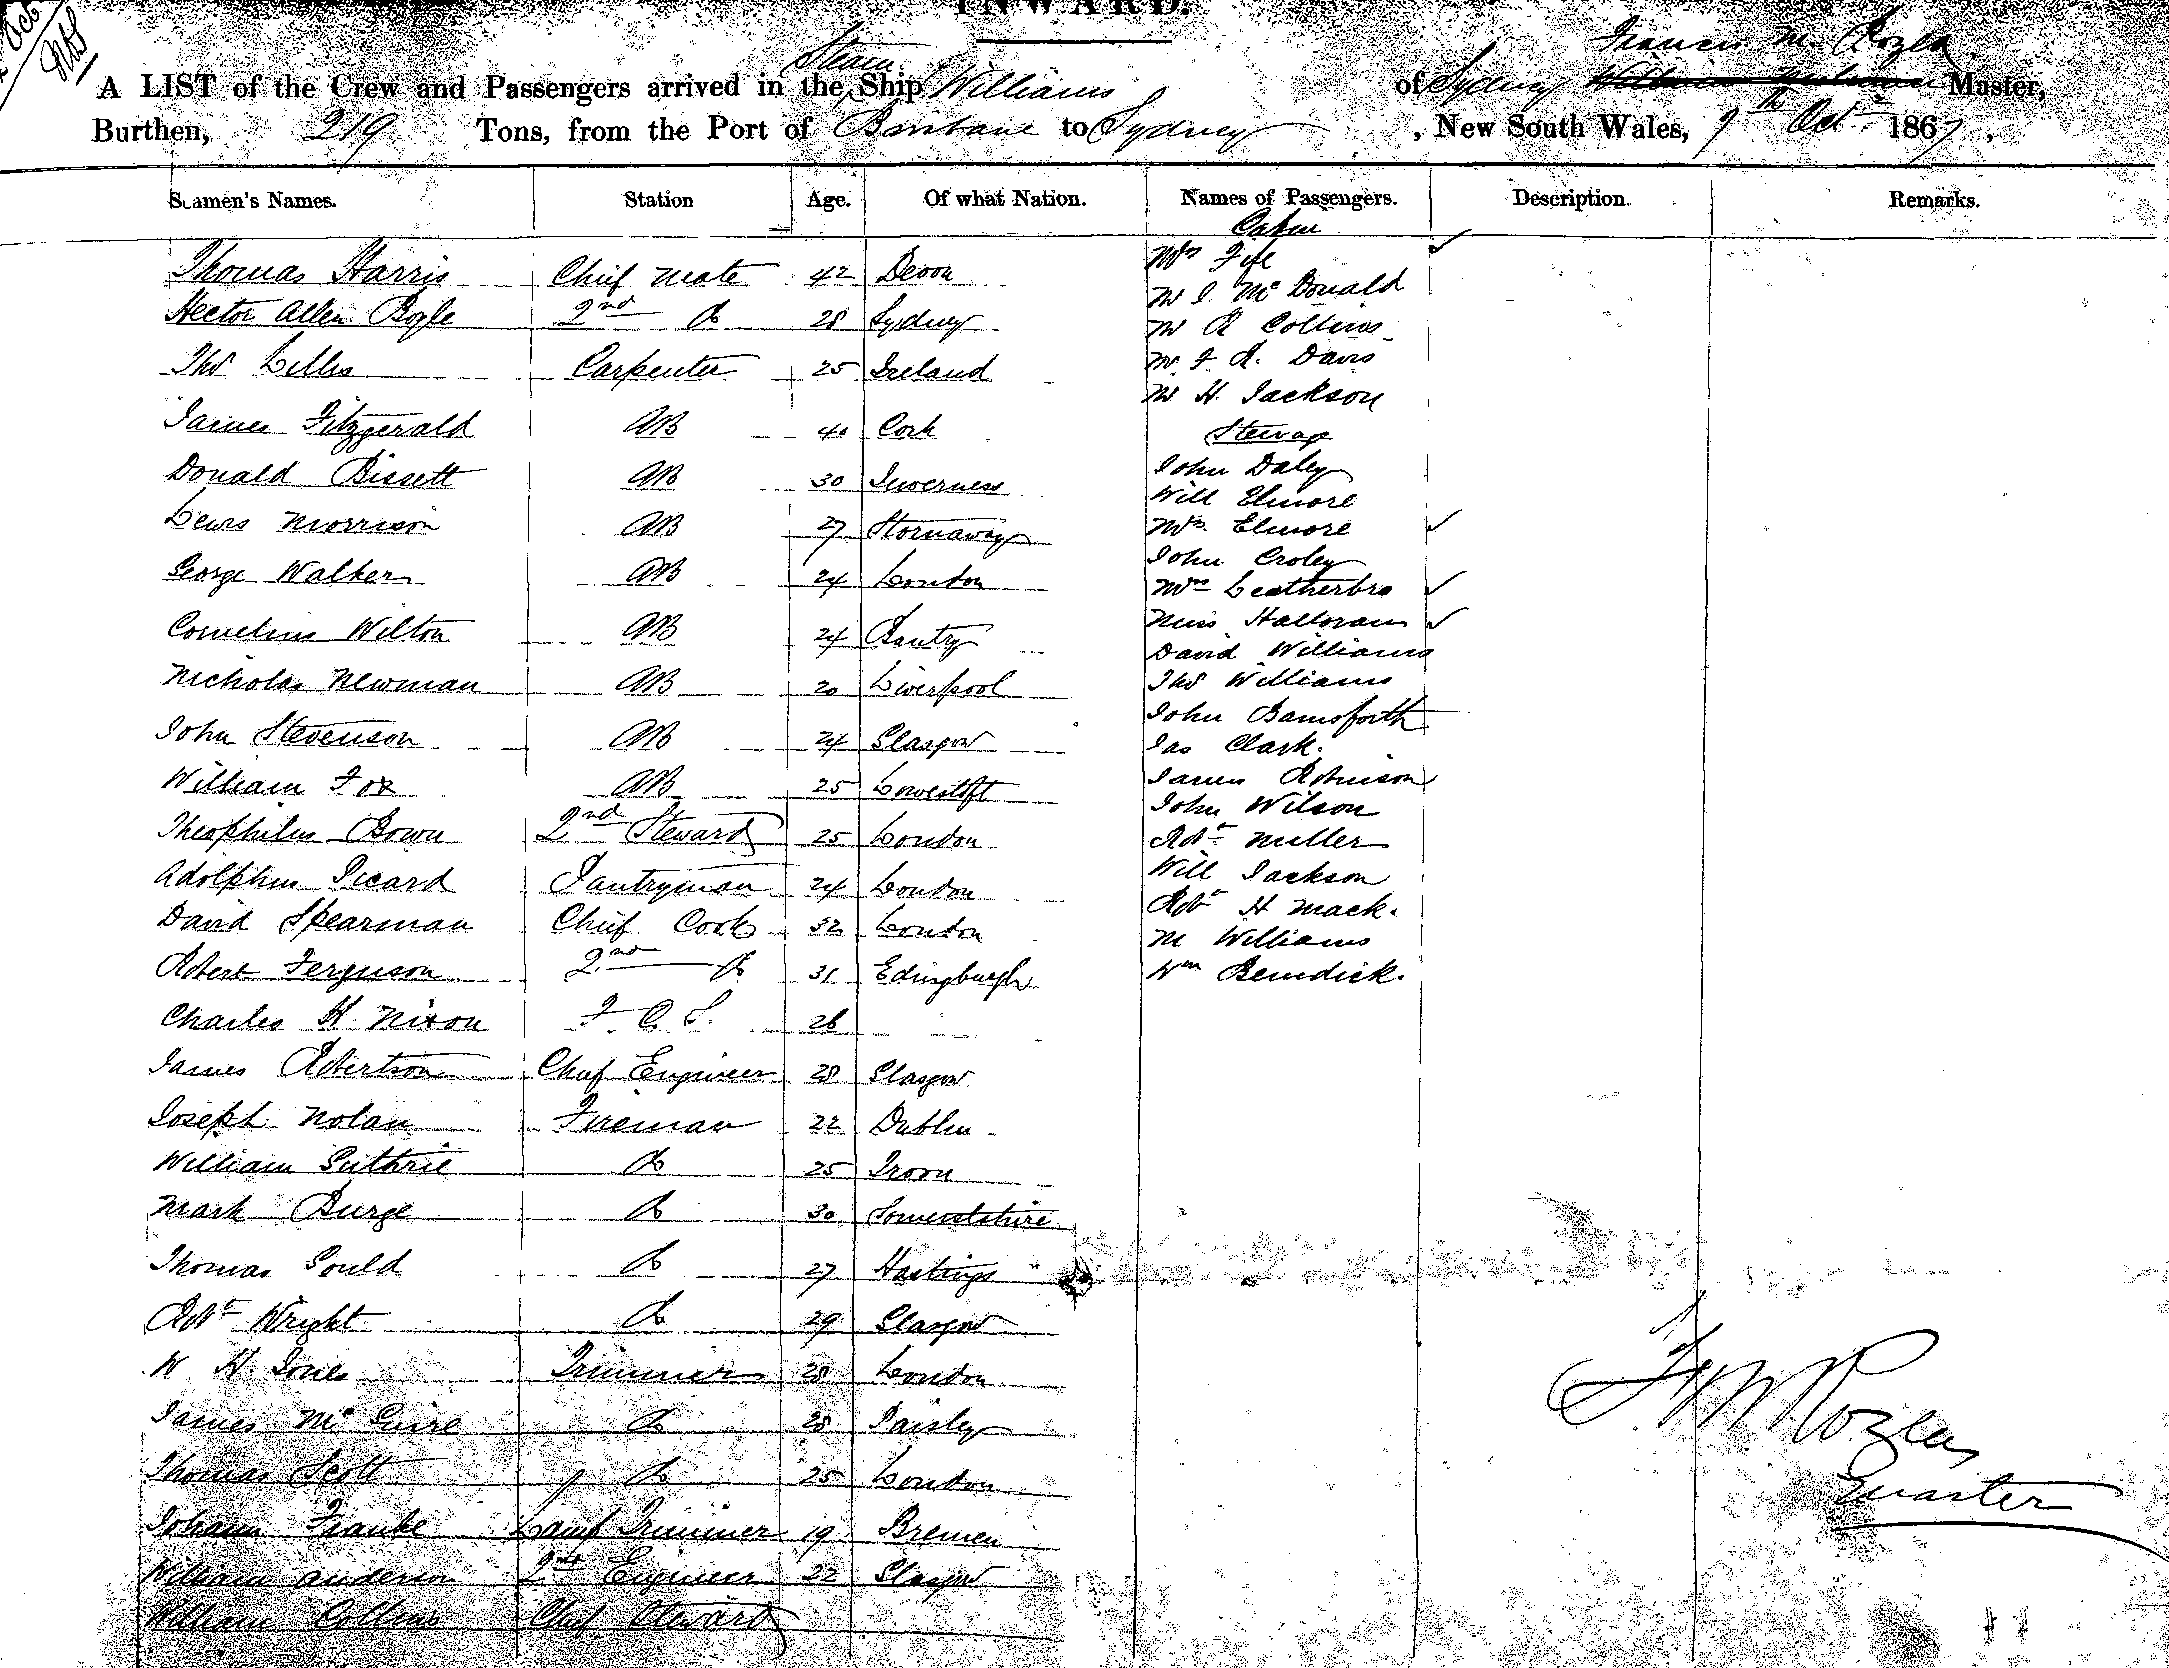 INWARD.
A LIST of the Crew and Passengers arrived in the Steam Ship Williams of Sydney Francis M. Master,
Burthen, 219 Tons, from the Port of Brisbane to Sydney, New South Wales, 9th Oct 1867,
Seamen's Names. Station Age. Of what Nation. Names of Passengers. Description. Remarks.
Cabin
Thomas Harris Chief Mate 42 Devon Mrs Fife
Mr McDonald
Hector Allen Boyle 2nd Do 28 Sydney Mr R Collins
Thos Lillis Carpenter 25 Ireland Mr F. R. Davis
Mr H. Jackson
James Fitzgerald AB 40 Cork Steerage
Donald Bissett AB 30 Inverness John Daley
Will Elmore
Lewis Morrison AB 27 Stornaway Mrs Elmore
John Croley
George Walker AB 24 London Mrs Leatherbro
Miss Halloran
Cornelius Wilton AB 24 Bantry David Williams
Nicholas Newman AB 20 Liverpool Thos Williams
John Bamsforth
John Stevenson AB 24 Glasgow Jas Clark.
William Fox AB 25 Lowestoft James Robinson
John Wilson
Theophilus Bown 2nd Steward 25 London Robt Miller
Adolphus Picard Pantryman 24 London Will Jackson
David Spearman Chief Cook 32 London Robt H Mack.
M Williams
Robert Ferguson 2nd Do 31 Edingburgh Wm Benedick.
Charles H. Nixon F. C. S. 26
James Robertson Chief Engineer 28 Glasgow
Joseph Nolan Fireman 22 Dublin
William Guthrie Do 25 Troon
Mark Burge Do 30 Somersetshire
Thomas Gould Do 27 Hastings
Robt Wright Do 29 Glasgow
W H Jones Trimmer 28 London
James McGuire Do 28 Paisley
Thomas Scott Do 25 London
Johann Franke Lamp Trimmer 19 Bremen
William Anderson 2nd Engineer 22 Glasgow
William Collins Chief Steward
Master